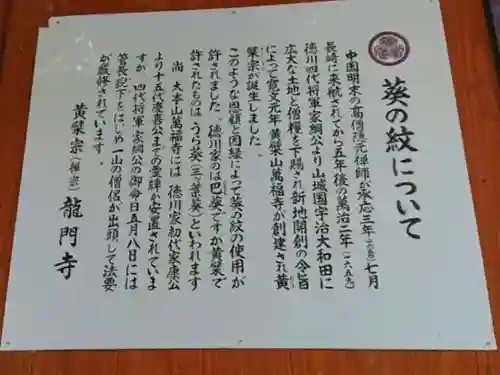 葵の紋について
中国明末の高僧隠元禅師が承応三年(一六五四)七月
長崎に来航されてから五年後の萬治二年(一六五九)
徳川四代将軍家綱公より山城国宇治大和田に
広大な土地と僧糧を下賜され新地開創の令旨
によって寛文元年黄檗山萬福寺が創建され黄
檗宗が誕生しました。
このような恩顧と因縁によって葵の紋の使用が
許されました。徳川家のは巴葵ですが黄檗で
許されたものは、うら葵(三つ葉葵)といわれます
尚 大本山萬福寺には 徳川家初代家康公
より十五代慶喜公までの霊牌が安置されていま
すが、四代将軍家綱公の御命日五月八日には
管長猊下をはじめ一山の僧侶が出頭して法要
が厳修されています。
黄檗宗(禅宗) 龍門寺